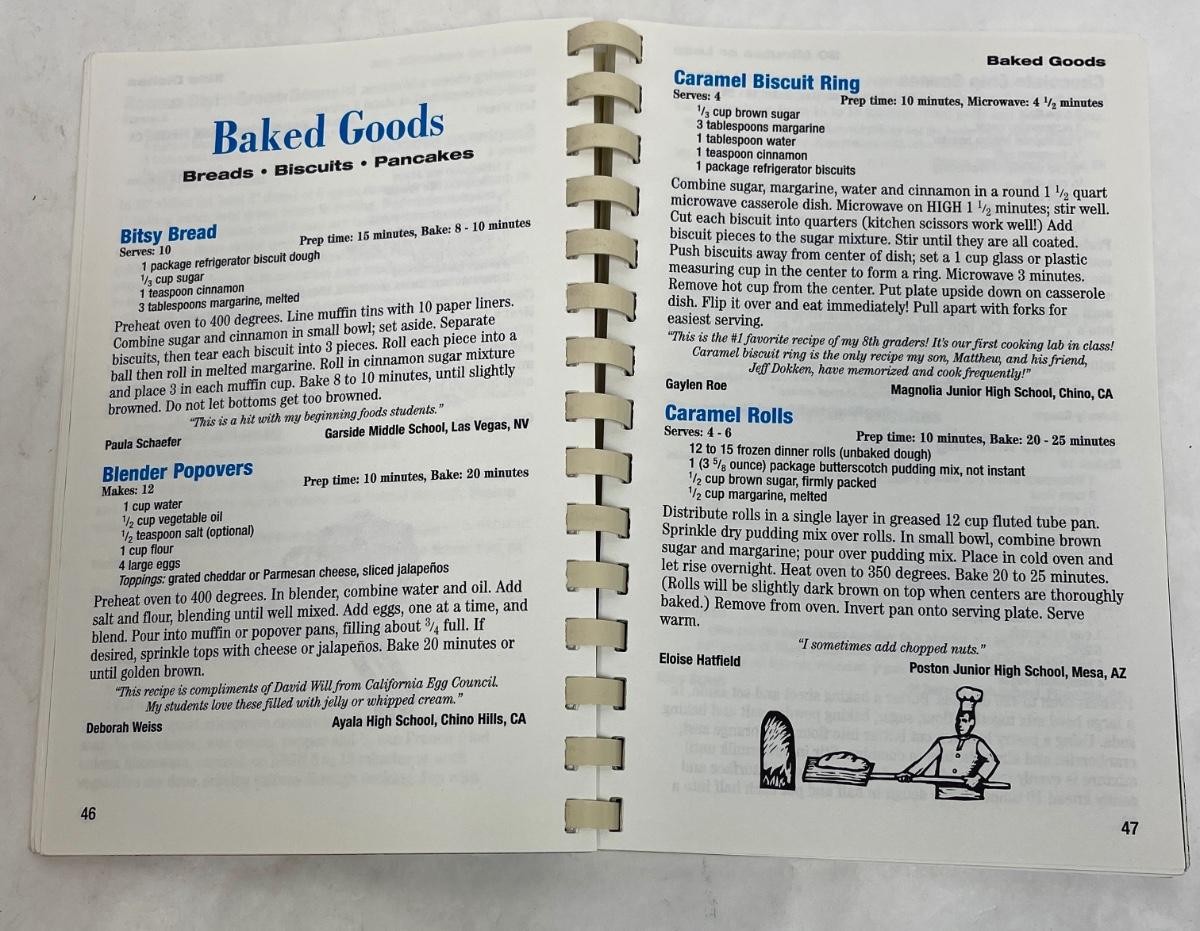 Baked Goods
Breads • Biscuits • Pancakes
Bitsy Bread
Serves: 10
Prep time: 15 minutes, Bake: 8 - 10 minutes
1 package refrigerator biscuit dough
1/3 cup sugar
1 teaspoon cinnamon
3 tablespoons margarine, melted
Preheat oven to 400 degrees. Line muffin tins with 10 paper liners.
Combine sugar and cinnamon in small bowl; set aside. Separate
biscuits, then tear each biscuit into 3 pieces. Roll each piece into a
ball then roll in melted margarine. Roll in cinnamon sugar mixture
and place 3 in each muffin cup. Bake 8 to 10 minutes, until slightly
browned. Do not let bottoms get too browned.
"This is a hit with my beginning foods students."
Paula Schaefer
Garside Middle School, Las Vegas, NV
Blender Popovers
Makes: 12
Prep time: 10 minutes, Bake: 20 minutes
1 cup water
1/2 cup vegetable oil
1/2 teaspoon salt (optional)
1 cup flour
4 large eggs
Toppings: grated cheddar or Parmesan cheese, sliced jalapeños
Preheat oven to 400 degrees. In blender, combine water and oil. Add
salt and flour, blending until well mixed. Add eggs, one at a time, and
blend. Pour into muffin or popover pans, filling about 3/4 full. If
desired, sprinkle tops with cheese or jalapeños. Bake 20 minutes or
until golden brown.
"This recipe is compliments of David Will from California Egg Council.
My students love these filled with jelly or whipped cream."
Deborah Weiss
Ayala High School, Chino Hills, CA
46
Baked Goods
Caramel Biscuit Ring
Serves: 4
Prep time: 10 minutes, Microwave: 4 1/2 minutes
1/3 cup brown sugar
3 tablespoons margarine
1 tablespoon water
1 teaspoon cinnamon
1 package refrigerator biscuits
Combine sugar, margarine, water and cinnamon in a round 1 1/2 quart
microwave casserole dish. Microwave on HIGH 1 1/2 minutes; stir well.
Cut each biscuit into quarters (kitchen scissors work well!) Add
biscuit pieces to the sugar mixture. Stir until they are all coated.
Push biscuits away from center of dish; set a 1 cup glass or plastic
measuring cup in the center to form a ring. Microwave 3 minutes.
Remove hot cup from the center. Put plate upside down on casserole
dish. Flip it over and eat immediately! Pull apart with forks for
easiest serving.
"This is the #1 favorite recipe of my 8th graders! It's our first cooking lab in class!
Caramel biscuit ring is the only recipe my son, Matthew, and his friend,
Jeff Dokken, have memorized and cook frequently!"
Gaylen Roe
Magnolia Junior High School, Chino, CA
Caramel Rolls
Serves: 4 - 6
Prep time: 10 minutes, Bake: 20 - 25 minutes
12 to 15 frozen dinner rolls (unbaked dough)
1 (3 5/8 ounce) package butterscotch pudding mix, not instant
1/2 cup brown sugar, firmly packed
1/2 cup margarine, melted
Distribute rolls in a single layer in greased 12 cup fluted tube pan.
Sprinkle dry pudding mix over rolls. In small bowl, combine brown
sugar and margarine; pour over pudding mix. Place in cold oven and
let rise overnight. Heat oven to 350 degrees. Bake 20 to 25 minutes.
(Rolls will be slightly dark brown on top when centers are thoroughly
baked.) Remove from oven. Invert pan onto serving plate. Serve
warm.
"I sometimes add chopped nuts."
Eloise Hatfield
Poston Junior High School, Mesa, AZ
47